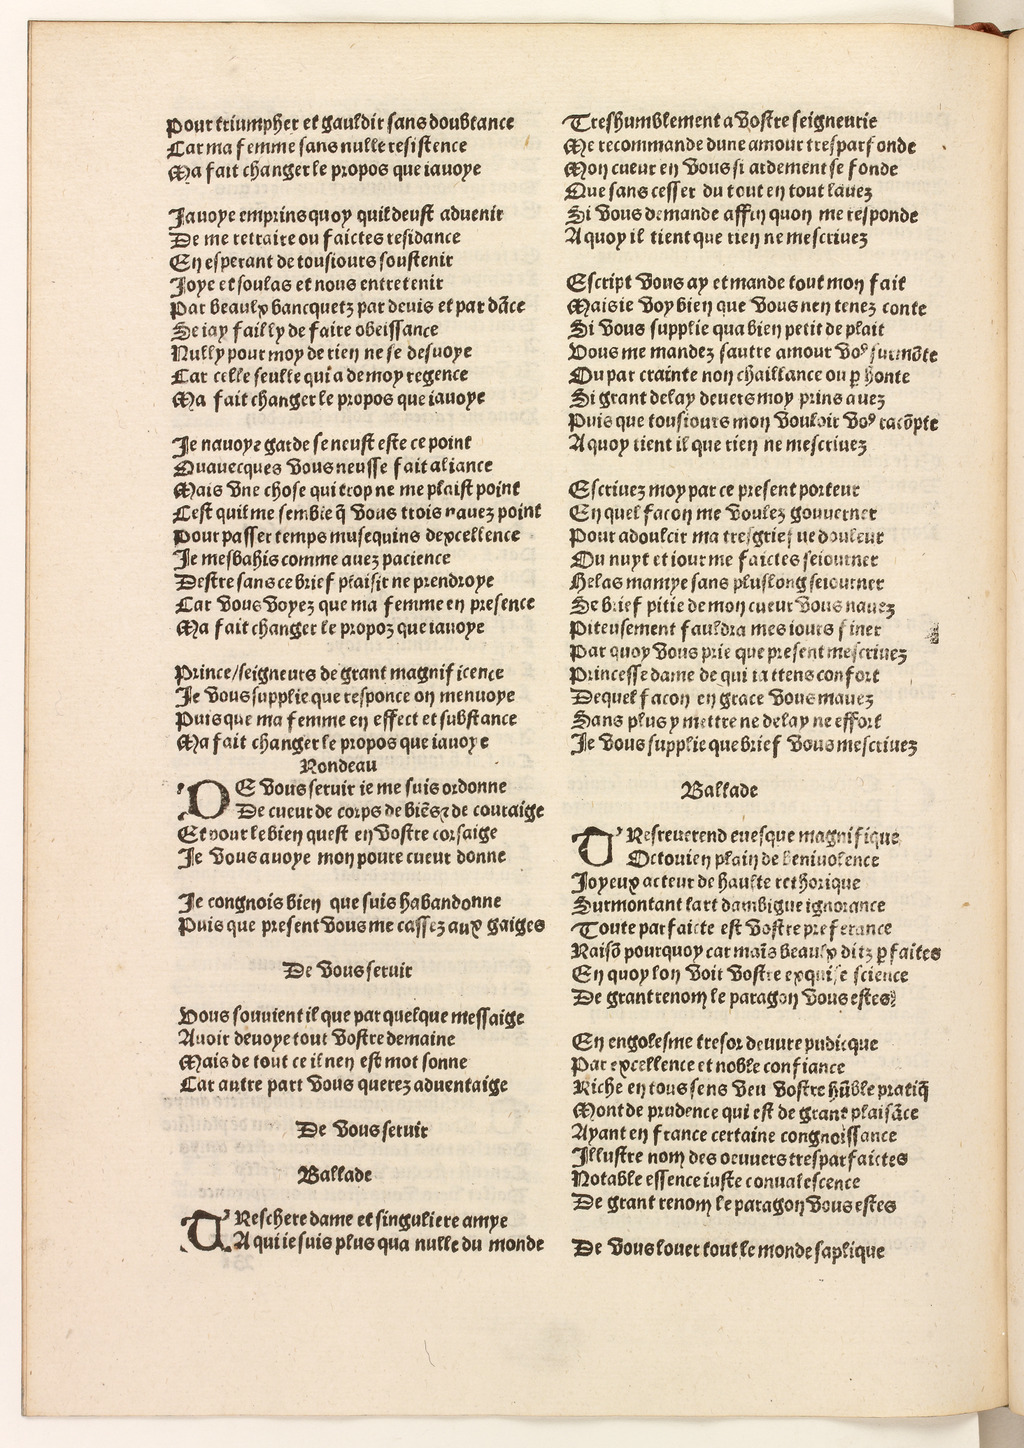 Pour triumpher et gaudir sans doubtance
Car ma femme sans nulle resistence
Ma fait changer le propos que iauoye
Jauoye emprins quoy quil deust aduenir
De me retraire ou faictes residance
En esperant de tousiours soustenir
Joye et soulas et nous entretenir
Par beaulx bancquetz par deuis et par dāce
Se iay failly de faire obeissance
Nully pour moy de rien ne se desuoye
Car celle seulle qui a de moy regence
Ma fait changer le propos que iauoye
Je nauoye garde se neust este ce point
Quauecques vous neusse fait aliance
Mais vne chose qui trop ne me plaist point
Cest quil me semble q̄ vous trois nauez point
Pour passer temps musequins dexcellence
Je mesbahis comme auez pacience
Destre sans ce brief plaisir ne prendroye
Car vous voyez que ma femme en presence
Ma fait changer le propoz que iauoye
Prince/seigneurs de grant magnificence
Je vous supplie que responce on menuoye
Puis que ma femme en effect et substance
Ma fait changer le propos que iauoye
Rondeau
DE vous seruir ie me suis ordonne
De cueur de corps de biēs ⁊ de couraige
Et pour le bien quest en vostre corsaige
Je vous auoye mon poure cueur donne
Je congnois bien que suis habandonne
Puis que present vous me cassez aux gaiges
De vous seruir
Vous souuient il que par quelque messaige
Auoir deuoye tout vostre demaine
Mais de tout ce il nen est mot sonne
Car autre part vous querez aduentaige
De vous seruir
Ballade
TReschere dame et singuliere amye
A qui ie suis plus qua nulle du monde
Treshumblement a vostre seigneurie
Me recommande dune amour tresparfonde
Mon cueur en vous si ardement se fonde
Que sans cesser du tout en tout lauez
Si vous demande affin quon me responde
A quoy il tient que rien ne mescriuez
Escript vous ay et mande tout mon fait
Mais ie voy bien que vous nen tenez conte
Si vous supplie qua bien petit de plait
Vous me mandez sautre amour voꝰ surmōte
Ou par crainte non chaillance ou ꝑ honte
Si grant delay deuers moy prins auez
Puis que tousiours mon vouloir voꝰ racōpte
A quoy tient il que rien ne mescriuez
Escriuez moy par ce present porteur
En quel facon me voulez gouuerner
Pour adoulcir ma tresgriefue douleur
Ou nuyt et iour me faictes seiourner
Helas mamye sans plus long seiourner
Se brief pitie de mon cueur vous nauez
Piteusement fauldra mes iours finer
Par quoy vous prie que present mescriuez
Princesse dame de qui iattens confort
De quel facon en grace vous mauez
Sans plus y mettre ne delay ne effort
Je vous supplie que brief vous mescriuez
Ballade
TResreuerend euesque magnifique
Octouien plain de beniuolence
Joyeux acteur de haulte rethorique
Surmontant lart dambigue ignorance
Toute parfaicte est vostre preferance
Raisō pourquoy car mais̄ beaulx ditz ꝑfaites
En quoy lon voit vostre exquise science
De grant renom le paragon vous estes
En engolesme tresor deuure pudicque
Par excellence et noble confiance
Riche en tous sens veu vostre hūble pratiq̄
Mont de prudence qui est de grant plaisāce
Ayant en france certaine congnoissance
Illustre nom des oeuuers tresparfaictes
Notable essence iuste conualescence
De grant renom le paragon vous estes
De vous louer tout le monde saplique